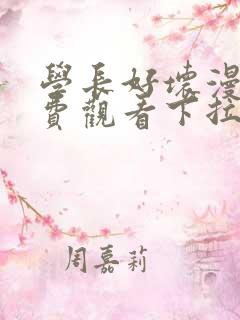 學長好壞漫
費觀看下拉
周嘉莉